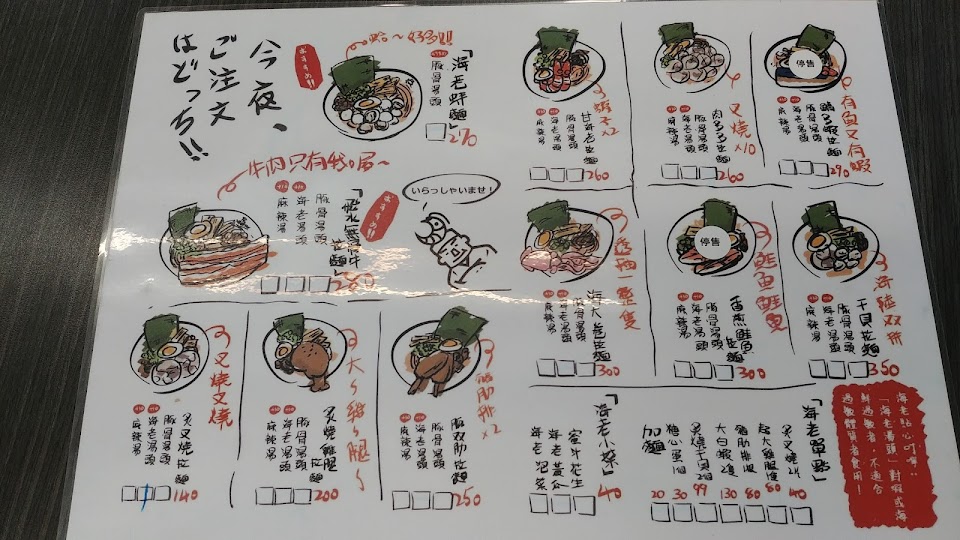 今夜、
ご注文
はどっち!!
おすすめ!!
蛤～好多!!
「海老蚌麵」
豚骨湯頭
270
蝦子x2
甘蝦老拉麵
豚骨湯頭
海老湯頭
麻辣湯
260
叉燒x10
肉多多拉麵
豚骨湯頭
海老湯頭
麻辣湯
260
停售
有魚又有蝦
豚骨湯頭
海老湯頭
麻辣湯
290
牛肉只有
おすすめ!!
豚骨湯頭
海老湯頭
麻辣湯
280
いらっしゃいませ!
透抽一整隻
海大卷拉麵
豚骨湯頭
海老湯頭
麻辣湯
300
停售
鮭魚鮭魚
香煎鮭魚拉麵
豚骨湯頭
海老湯頭
麻辣湯
300
海陸双拼
干貝拉麵
豚骨湯頭
海老湯頭
麻辣湯
350
叉燒叉燒
炙叉燒拉麵
豚骨湯頭
海老湯頭
麻辣湯
140
大～雞～腿～
炙燒雞腿拉麵
豚骨湯頭
海老湯頭
麻辣湯
200
筋肋排x2
豚双肋拉麵
豚骨湯頭
海老湯頭
麻辣湯
250
「海老小菜」
蜜汁花生
海老黃瓜
海老泡菜
40
「海老單點」
炙叉燒2片 40
炙大雞腿1隻 80
豬肋排1根 80
大白蝦2隻 130
炙燒干貝2個 99
糖心蛋1個 30
加麵 20
海老貼心叮嚀：
「海老湯頭」對蝦或海
鮮過敏者，不適合
過敏體質者食用！